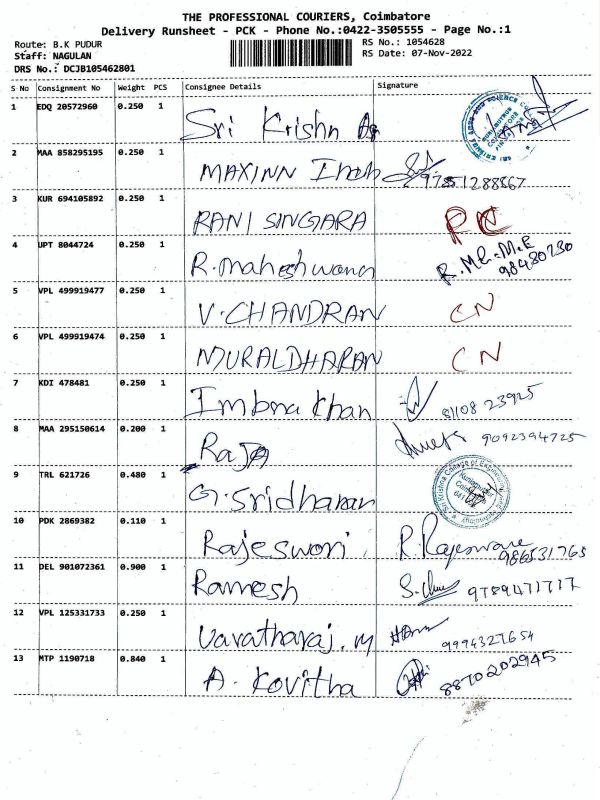 THE PROFESSIONAL COURIERS, Coimbatore
Delivery Runsheet - PCK - Phone No.:0422-3505555 - Page No.:1
Route: B.K PUDUR RS No.: 1054628
Staff: NAGULAN RS Date: 07-Nov-2022
DRS No.: DCJB105462801
S No Consignment No Weight PCS Consignee Details Signature
1 EDQ 20572960 0.250 1 Sri Krishn
2 MAA 858295195 0.250 1 MAXINN
3 KUR 694105892 0.250 1 RANI SINGARA
4 UPT 8044724 0.250 1 R.maheshwaran
5 VPL 499919477 0.250 1 V.CHANDRAN CN
6 VPL 499919474 0.250 1 MURALDHARAN CN
7 KDI 478481 0.250 1 Imbra khan 81108 23925
8 MAA 295150614 0.200 1 Raja 9092394725
9 TRL 621726 0.480 1 G.Sridharan
Sri Krishna College of Engineering and Technology
10 PDK 2869382 0.110 1 Rajeswari. R. Rajeswari 986531765
11 DEL 901072361 0.900 1 Ramesh 9789471717
12 VPL 125331733 0.250 1 Varatharaj.M 9994327654
13 MTP 1190718 0.840 1 A. Kovitha 8870202945